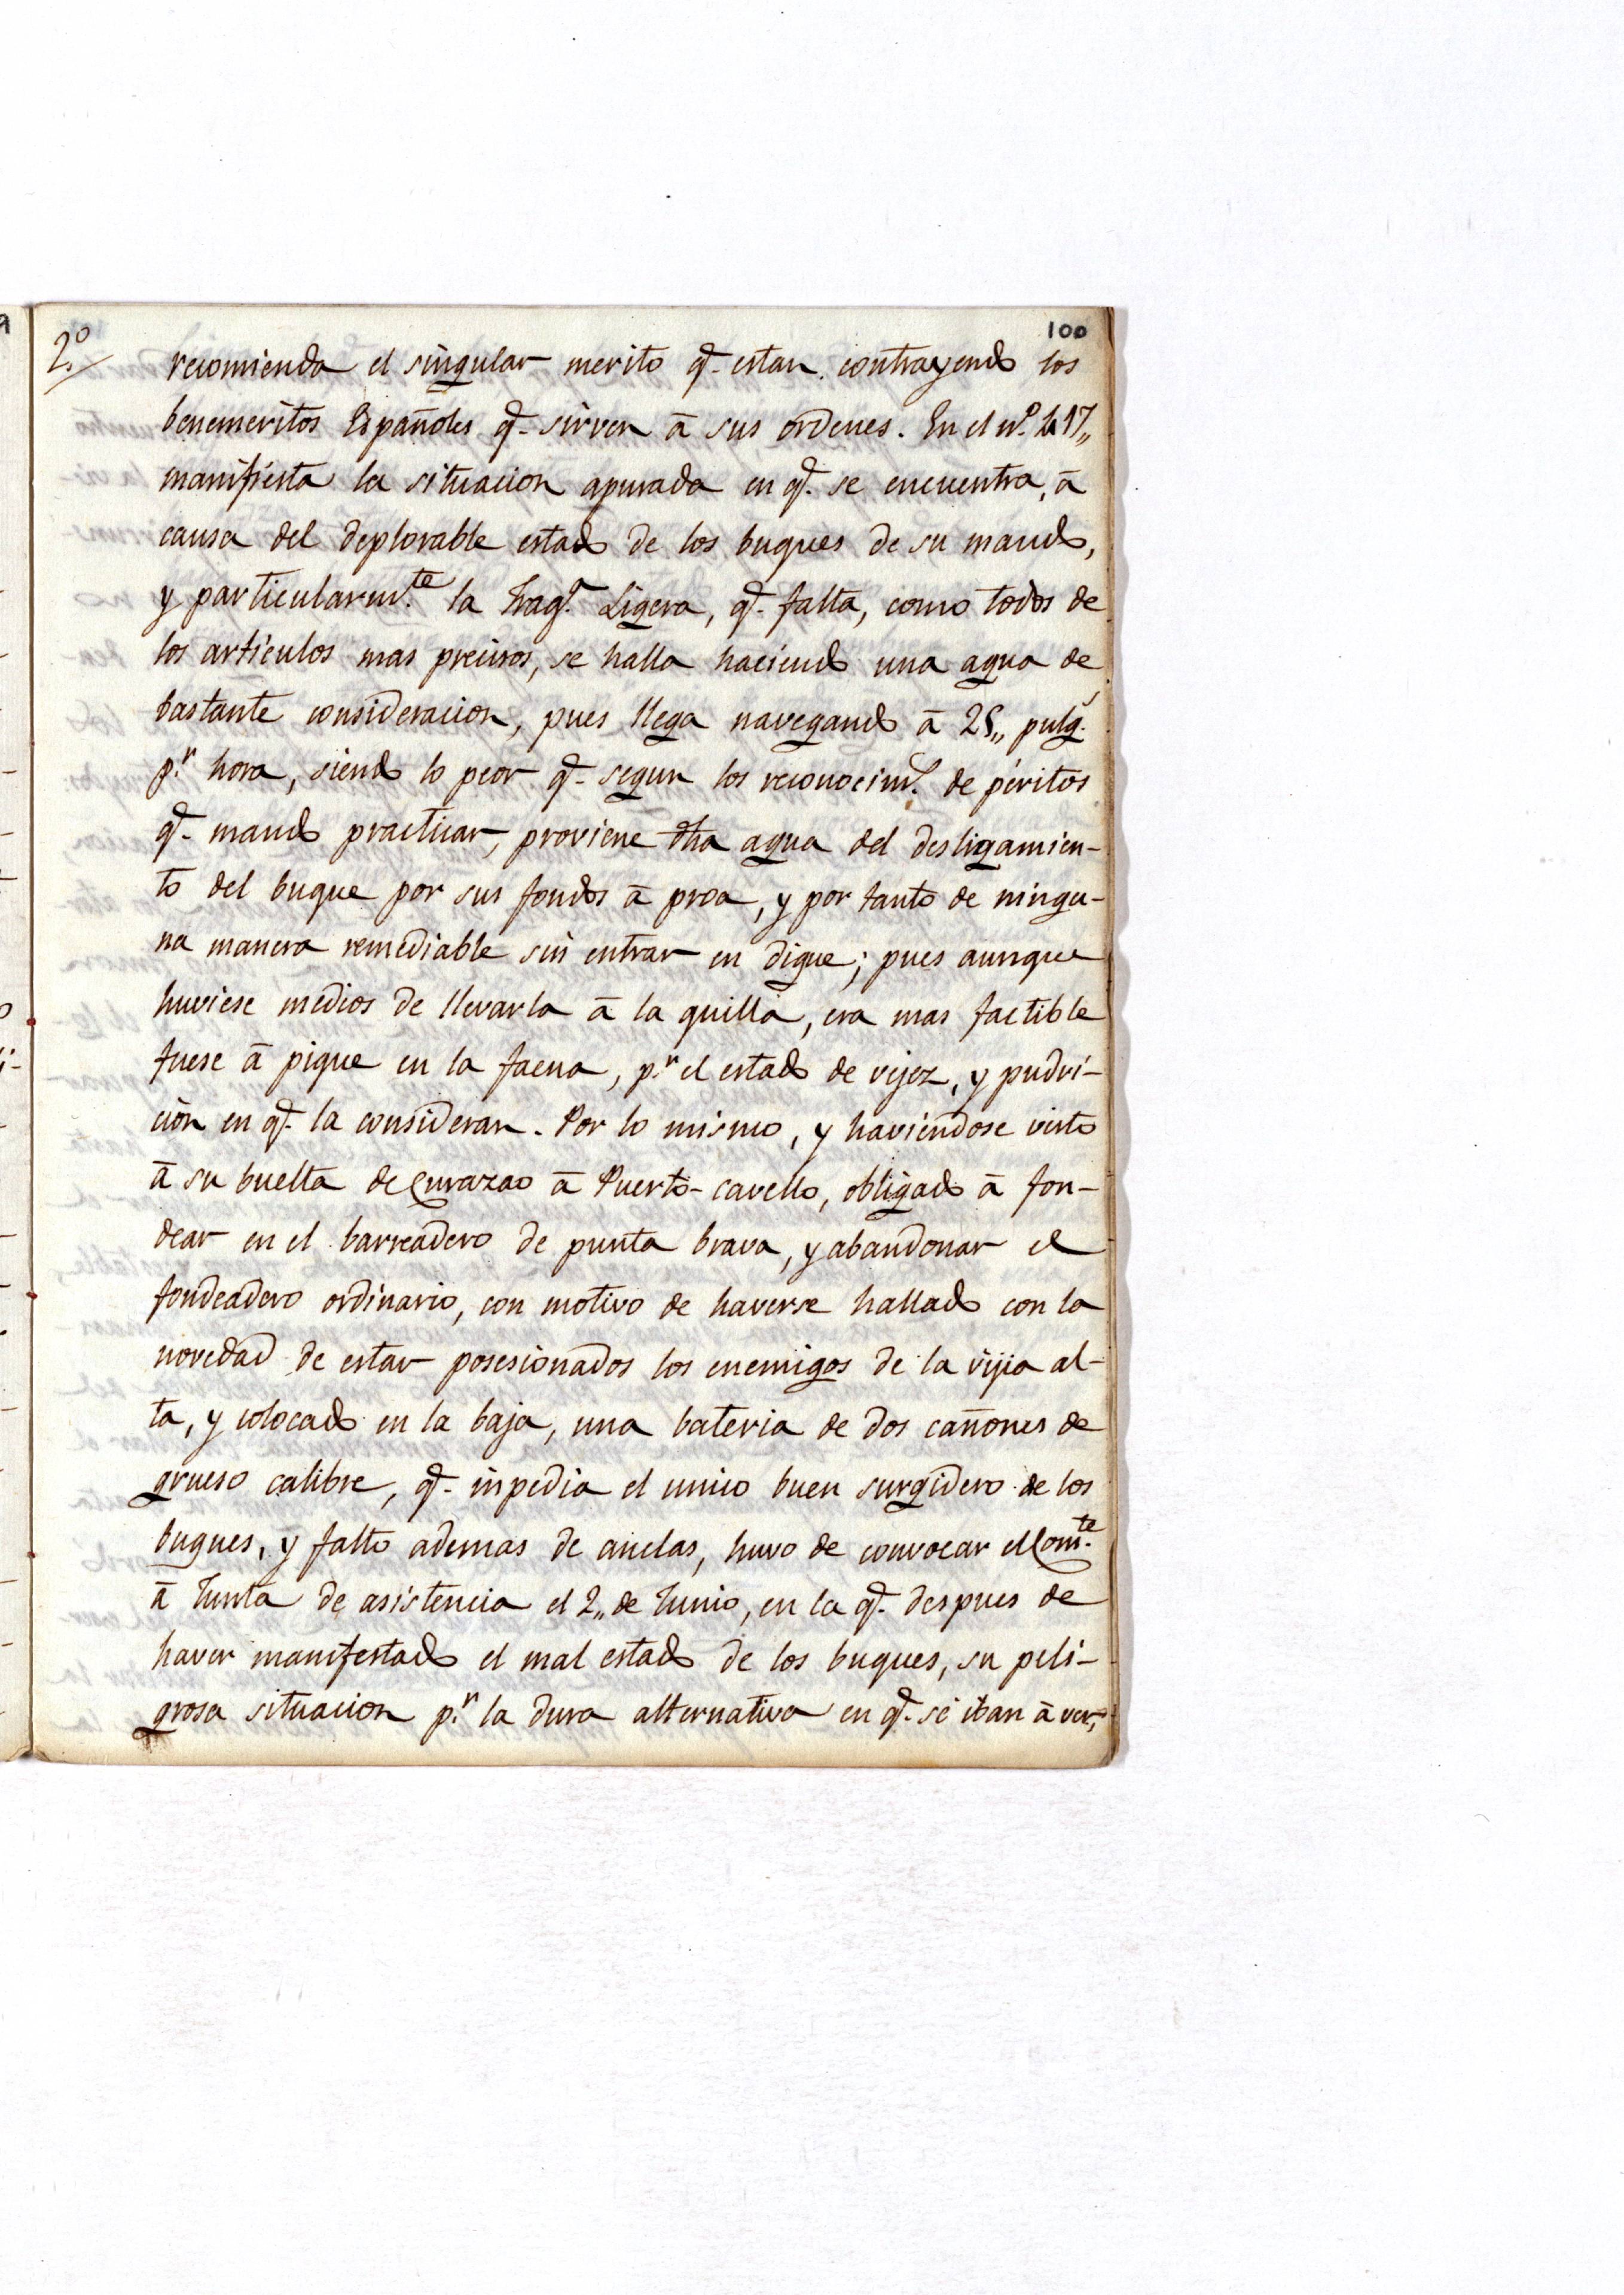 100
2.º/
recomienda el singular merito q.e estan contrayendo los
benemeritos Españoles q.e sirven à sus ordenes. En el n.º 217,,
manifiesta la situacion apurada en q.e se encuentra, à
causa del deplorable estado de los buques de su mando,
y particularm.te la Frag.ta Ligera, q.e falta, como todos de
los articulos mas precisos, se halla haciendo una agua de
bastante consideracion, pues llega navegando à 25,, pulg.s
p.r hora, siendo lo peor q.e segun los reconocim.s de péritos
q.e mando practicar, proviene dha agua del desligamien-
to del buque por sus fondos à proa, y por tanto de ningu-
na manera remediable sin entrar en dique; pues aunque
huviese medios de llevarla à la quilla, era mas factible
fuese à pique en la faena, p.r el estado de vejez, y pudri-
cion en q.e la consideran. Por lo mismo, y haviendose visto
à su buelta de Curazao à Puerto-cavello, obligado à fon-
dear en el barreadero de punta brava, y abandonar el
fondeadero ordinario, con motivo de haverse hallado con la
novedad de estar posesionados los enemigos de la vijia al-
ta, y colocado en la baja, una bateria de dos cañones de
grueso calibre, q.e inpedia el unico buen surgidero de los
buques, y falto ademas de anclas, huvo de convocar el Com.te
à Junta de asistencia el 2,, de Junio, en la q.e despues de
haver manifestado el mal estado de los buques, su peli-
grosa situacion p.r la dura alternativa en q.e se iban à ver,